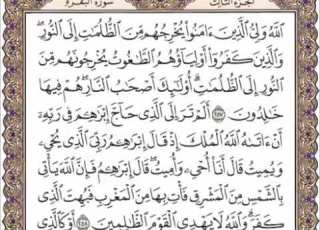 الجزء الثالث سورة البقرة
ٱللَّهُ وَلِىُّ ٱلَّذِينَ ءَامَنُوا۟ يُخْرِجُهُم مِّنَ ٱلظُّلُمَـٰتِ إِلَى ٱلنُّورِ
وَٱلَّذِينَ كَفَرُوٓا۟ أَوْلِيَآؤُهُمُ ٱلطَّـٰغُوتُ يُخْرِجُونَهُم مِّنَ
ٱلنُّورِ إِلَى ٱلظُّلُمَـٰتِ ۗ أُو۟لَـٰٓئِكَ أَصْحَـٰبُ ٱلنَّارِ ۖ هُمْ فِيهَا
خَـٰلِدُونَ ٢٥٧ أَلَمْ تَرَ إِلَى ٱلَّذِى حَآجَّ إِبْرَٰهِـۧمَ فِى رَبِّهِۦٓ
أَنْ ءَاتَىٰهُ ٱللَّهُ ٱلْمُلْكَ إِذْ قَالَ إِبْرَٰهِـۧمُ رَبِّىَ ٱلَّذِى يُحْىِۦ
وَيُمِيتُ قَالَ أَنَا۠ أُحْىِۦ وَأُمِيتُ ۖ قَالَ إِبْرَٰهِـۧمُ فَإِنَّ ٱللَّهَ يَأْتِى
بِٱلشَّمْسِ مِنَ ٱلْمَشْرِقِ فَأْتِ بِهَا مِنَ ٱلْمَغْرِبِ فَبُهِتَ ٱلَّذِى
كَفَرَ ۗ وَٱللَّهُ لَا يَهْدِى ٱلْقَوْمَ ٱلظَّـٰلِمِينَ ٢٥٨ أَوْ كَٱلَّذِى